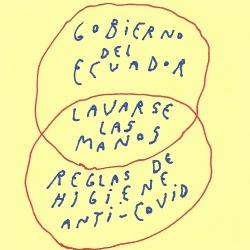 GOBIERNO
DEL
ECUADOR
LAVARSE
LAS
MANOS
REGLAS DE
HIGIENE
ANTI-COVID